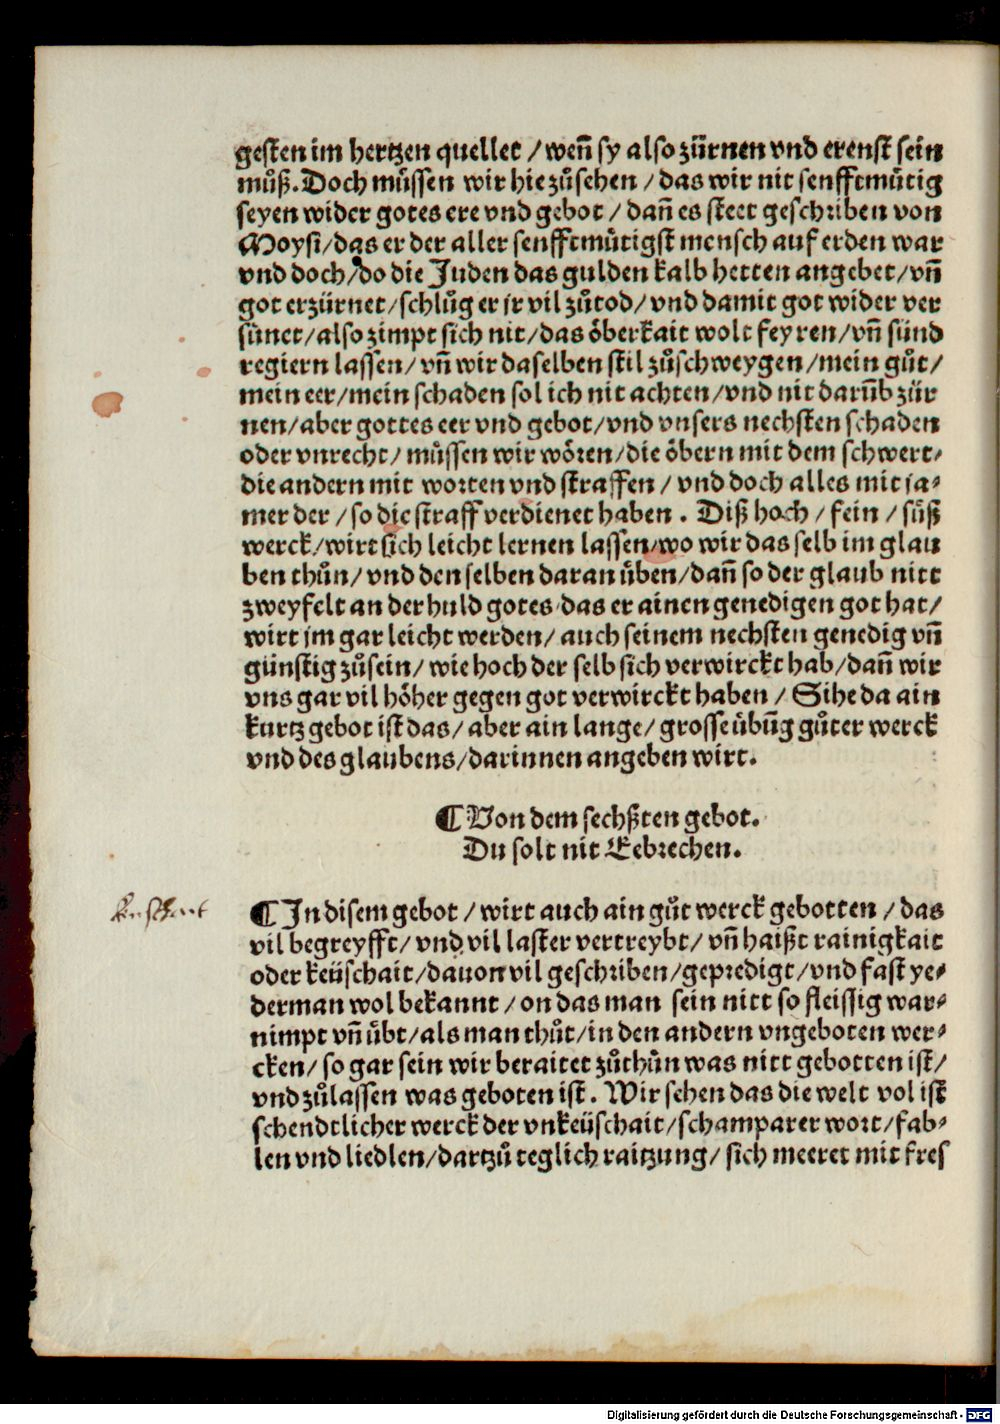 gesten im hertzen quellet / weñ sy also zürnen vnd erenst sein
můß. Doch můssen wir hie zůsehen / das wir nit senfftmůtig
seyen wider gotes ere vnd gebot / dañ es steet geschriben von
Moysi/das er der aller senfftmůtigst mensch auf erden war
vnd doch/do die Juden das gulden kalb hetten angebet/vñ
got erzürnet/schlůg er jr vil zůtod/vnd damit got wider ver
sünet/also zimpt sich nit/das öberkait wolt feyren/vñ sünd
regiern lassen/vñ wir daselben stil zůschweygen/mein gůt/
mein eer/mein schaden sol ich nit achten/vnd nit darüb zür
nen/aber gottes eer vnd gebot/vnd vnsers nechsten schaden
oder vnrecht/müssen wir wören/die öbern mit dem schwert⸗
die andern mit worten vnd straffen / vnd doch alles mit ja⸗
mer der / so die straff verdienet haben . Diß hoch / fein / süß
werck/wirt sich leicht lernen lassen/wo wir das selb im glau
ben thůn/vnd den selben daran üben/dañ so der glaub nitt
zweyfelt an der huld gotes das er ainen genedigen got hat/
wirt jm gar leicht werden/auch seinem nechsten genedig vñ
günstig zůsein/wie hoch der selb sich verwirckt hab/dañ wir
vns gar vil höher gegen got verwirckt haben / Sihe da ain
kurtz gebot ist das/aber ain lange/grosse übūg gůter werck
vnd des glaubens/darinnen angeben wirt.
¶ Von dem sechßten gebot.
Du solt nit Eebrechen.
¶ In disem gebot / wirt auch ain gůt werck gebotten / das
vil begreyfft/vnd vil laster vertreybt/vñ haißt rainigkait
oder keüschait/dauon vil geschriben/gepredigt/vnd fast ye⸗
derman wol bekannt / on das man sein nitt so fleissig war⸗
nimpt vñ übt/als man thůt/in den andern vngeboten wer⸗
cken/so gar sein wir beraitet zůthůn was nitt gebotten ist/
vnd zůlassen was geboten ist . Wir sehen das die welt vol ist
schendtlicher werck der vnkeüschait/schamparer wort/fab⸗
len vnd liedlen/dartzů teglich raitzung/sich meeret mit fres
Digitalisierung gefördert durch die Deutsche Forschungsgemeinschaft - DFG